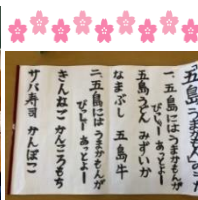 「五島うまかもん」のうた
一、五島にはうまかもんが
びっしゃーあっとよー
五島うどん みずいか
なまぶし 五島牛
二、五島にはうまかもんが
びっしゃーあっとよー
きんなご かんころもち
サバ寿司 かんぼこ